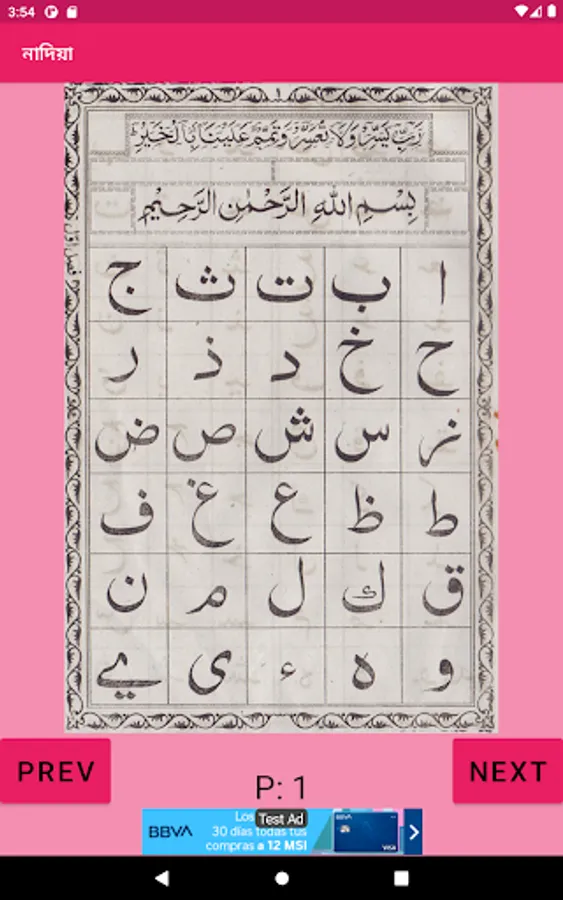 3:54
নাদিয়া
١
رَبِّ يَسِّرْ وَلَا تُعَسِّرْ وَتَمِّمْ عَلَيْنَا بِالْخَيْرِ
بِسْمِ اللهِ الرَّحْمٰنِ الرَّحِيْمِ
ا ب ت ث ج
ح خ د ذ ر
ز س ش ص ض
ط ظ ع غ ف
ق ك ل م ن
و ه ء ی ے
PREV
P: 1
NEXT
BBVA
Los
Test Ad
30 días todas tus
compras a 12 MSI
BBVA
VISA